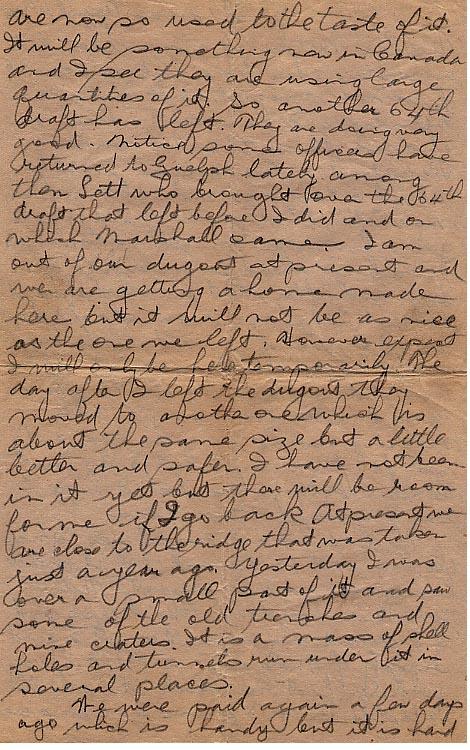 are now so used to the taste of it.
It will be something new in Canada
and I see they are using large
quantities of it. So another 64th
draft has left. They are doing very
good. Notice some officers have
returned to Guelph lately among
them Lett who brought over the 64th
draft that left before I did and on
which Marshall came. I am
out of our dugout at present and
we are getting a home made
here but it will not be as nice
as the one we left. However expect
I will only be here temporarily. The
day after I left the dugout they
moved to another one which is
about the same size but a little
better and safer. I have not been
in it yet but there will be room
for me if I go back. At present we
are close to the ridge that was taken
just a year ago. Yesterday I was
over a small part of it and saw
some of the old trenches and
mine craters. It is a mass of shell
holes and tunnels run under it in
several places.
We were paid again a few days
ago which is handy but it is hard